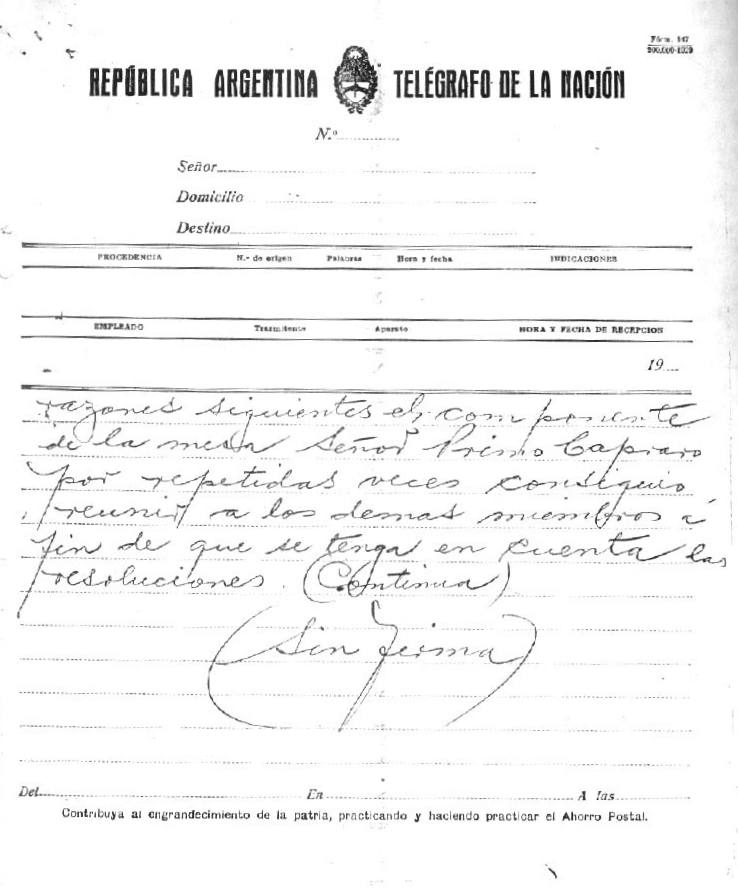 Fórm. 147
200.000-1929
REPÚBLICA ARGENTINA TELÉGRAFO DE LA NACIÓN
N.º
Señor
Domicilio
Destino
PROCEDENCIA N.º de origen Palabras Hora y fecha INDICACIONES
EMPLEADO Trasmitente Aparato HORA Y FECHA DE RECEPCION
19
razones siguientes el componente
de la mesa Señor Primo Capraro
por repetidas veces consiguio
reunir a los demas miembros á
fin de que se tenga en cuenta las
resoluciones. (Continua)
(Sin firma)
Del En A las
Contribuya al engrandecimiento de la patria, practicando y haciendo practicar el Ahorro Postal.